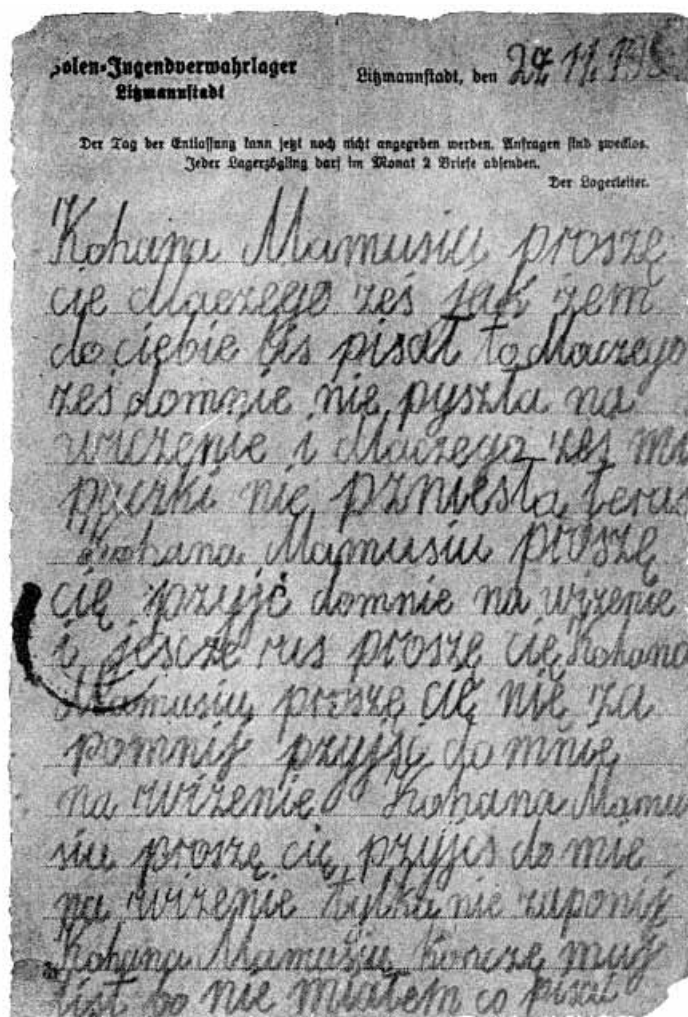 Polen-Jugendverwahrlager
Litzmannstadt
Litzmannstadt, den 27 11 19
Der Tag der Entlassung kann jetzt noch nicht angegeben werden. Anfragen sind zwecklos.
Jeder Lagerzögling darf im Monat 2 Briefe absenden.
Der Lagerleiter.
Kohana Mamusiu proszę
cię dlaczego żeś jak żem
do ciebie lis pisał to dlaczego
żeś domnie nie pyszła na
wiczenie i dlaczego żeś mi
pączki nie pzniesła teras
Kohana Mamusiu proszę
cię pzyjć domnie na wizenie
i jescze rus proszę cię Kohana
Mamusiu proszę cię nię za
pomnij pzyjśi do mnię
na wizenie Kohana Mamu
siu proszę cię pzyjcs do mie
na wizenie tylka nie zaponij
Kohana Mamusiu korczę muj
list bo nie miałem co pisać